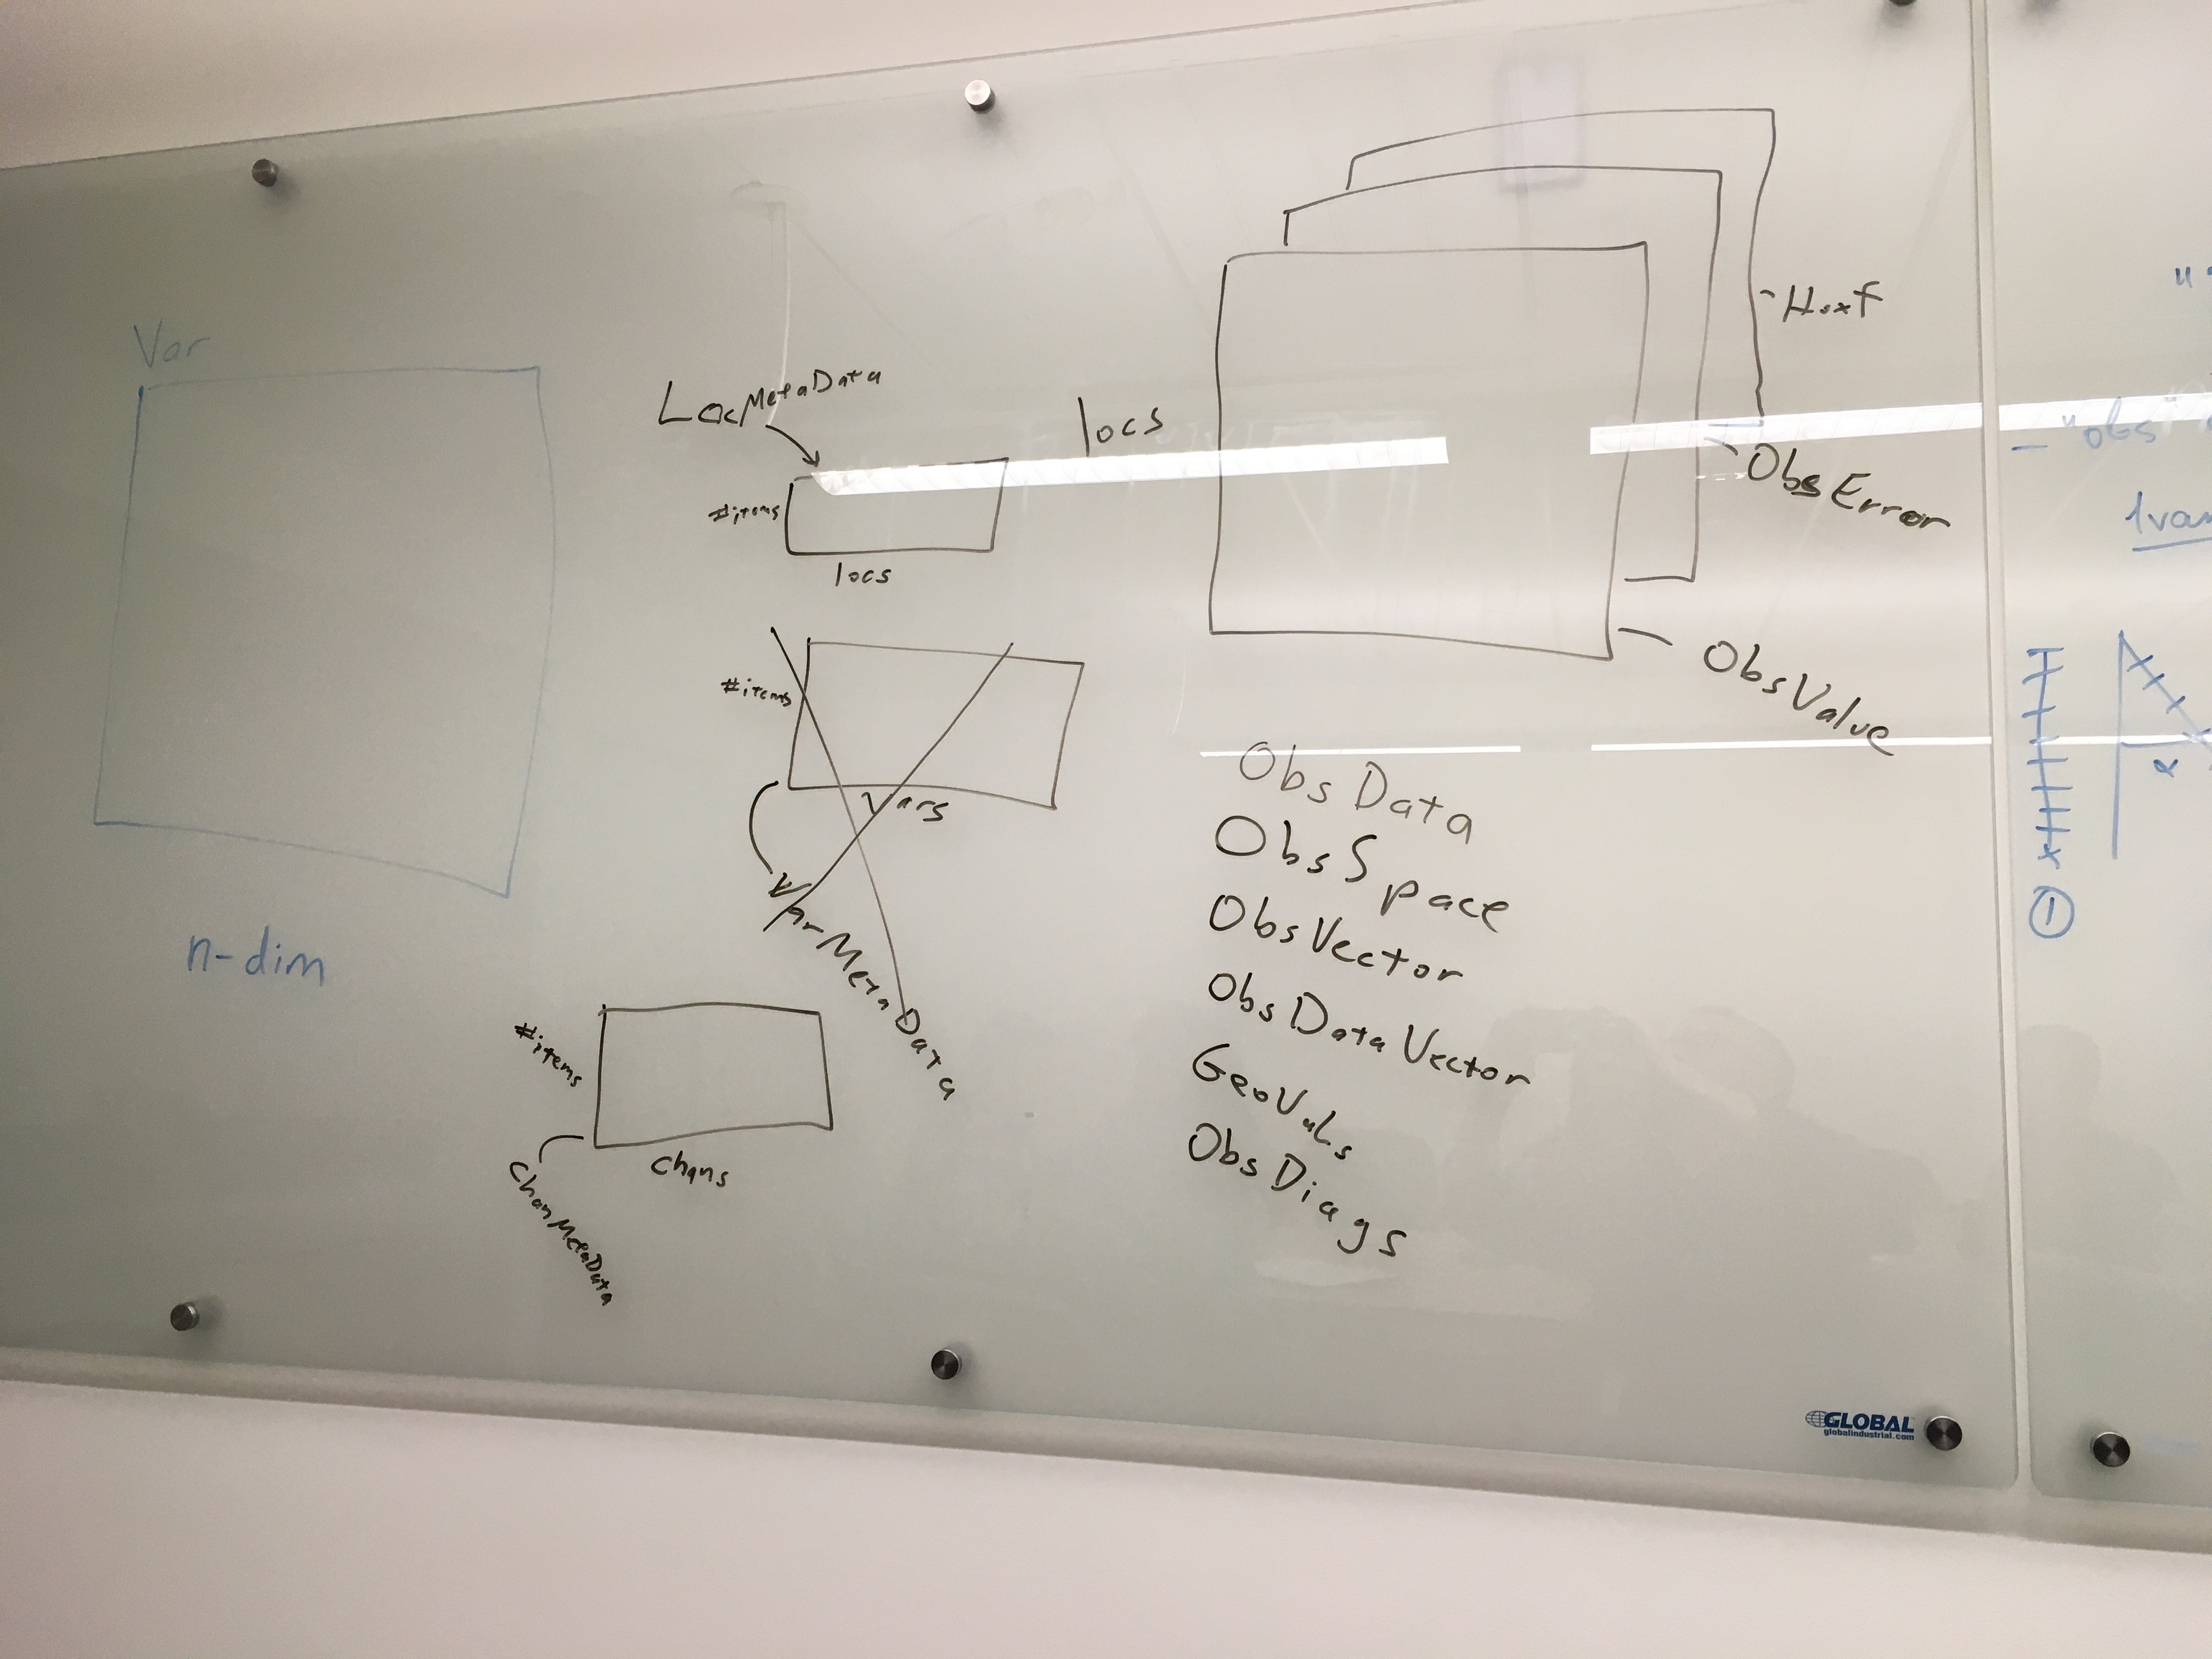 Var
n-dim
LocMetaData
#items
locs
#items
Vars
VarMetaData
#items
Chans
ChanMetaData
locs
Hoxf
ObsError
ObsValue
Obs Data
ObsSpace
ObsVector
ObsDataVector
GeoVaLs
ObsDiags
- "obs"
1
GLOBAL
globalindustrial.com